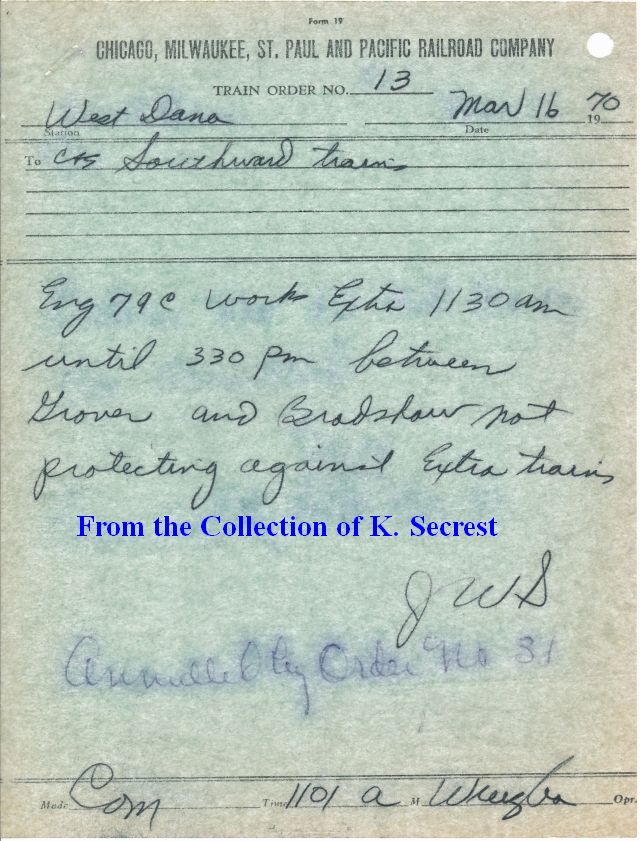 Form 19
CHICAGO, MILWAUKEE, ST. PAUL AND PACIFIC RAILROAD COMPANY
TRAIN ORDER NO. 13
West Dana Mar 16 1970
Station Date
To C&E Southward trains
Eng 79C work Extra 1130 am
until 330 pm between
Grover and Bradshaw not
protecting against Extra trains
From the Collection of K. Secrest
JWS
Annulled by Order No 31
Made Com Time 1101 a M Opr.